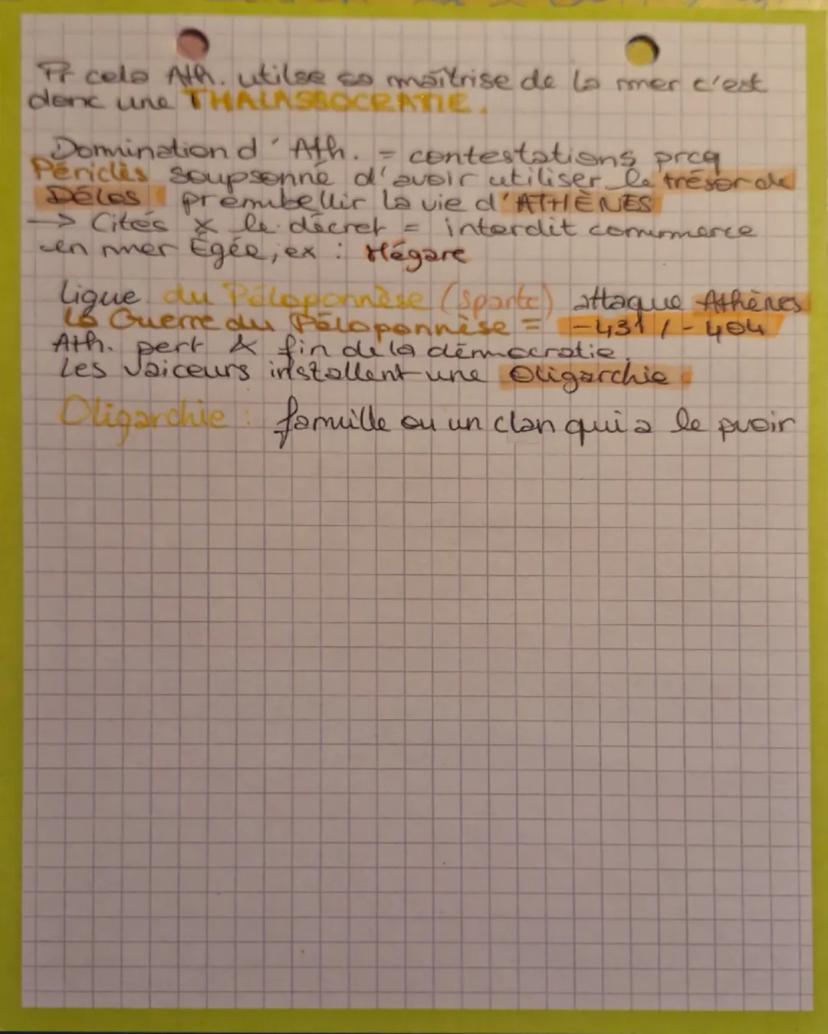 Pr cela Ath. utilse sa maîtrise de la mer c'est
donc une THALASSOCRATIE.
Domination d'Ath. = contestations prcq
Périclès soupsonne d'avoir utiliser le trésor de
Délos prembellir la vie d'ATHÈNES
—> Cités x le décret = interdit commerce
en mer Égée, ex : Mégare
Ligue du Péloponnèse (Sparte) attaque Athènes
La Guerre du Péloponnèse = -431 / -404
Ath. pert & fin de la démocratie.
Les vaiceurs installent une Oligarchie.
Oligarchie : famille ou un clan qui a le pvoir